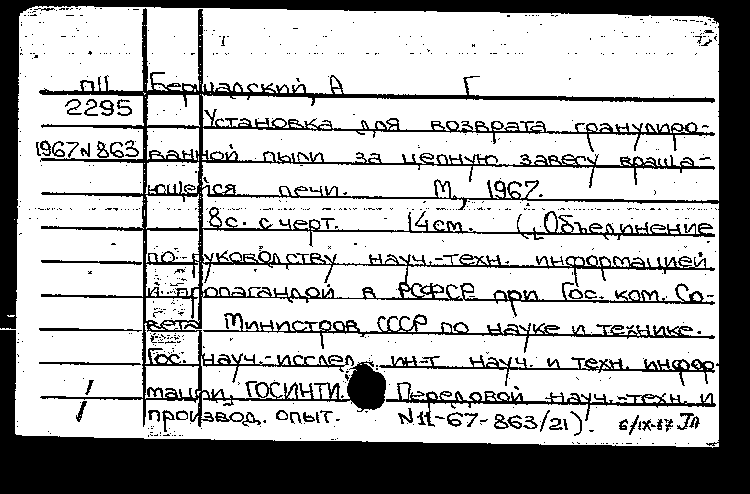 П11 Бершадский, А Г
2295 Установка для возврата гранулиро-
1967 N 863 ванной пыли за цепную завесу враща-
ющейся печи. М., 1967.
8 с. с черт. 14 см. (Объединение
по руководству науч.-техн. информацией
и пропагандой в РСФСР при Гос. ком. Со-
вета Министров СССР по науке и технике.
Гос. науч.-исслед. ин-т науч. и техн. инфор-
мации. ГОСИНТИ. Передовой науч.-техн. и
производ. опыт. N 11-67-863/21).